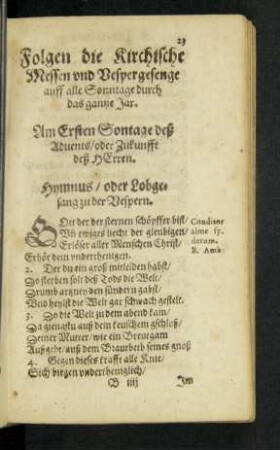 23
Folgen die Kirchische
Messen vnd Vespergesenge
auff alle Sonntage durch
das gantze Jar.
Am Ersten Sontage deß
Aduents/oder Zukunfft
deß HErren.
Hymnus/ oder Lobge-
sang zu der Vespern.
GOtt der der sternen schöpffer bist/
Vñ ewiges liecht der gleubigen/
Erlöser aller Menschen Christ/
Erhör dein vnderthenigen.
Conditor
alme sy-
derum.
B. Amb.
2. Der du ein groß mitleiden habst/
Do sterben solt deß Tods die Welt/
Drumb artzney den sündern gabst/
Vnd heylst die Welt gar schwach gestelt.
3. Do die Welt zu dem abend kam/
Da giengstu auß dein keuschem gschloß/
Deiner Mutter/ wie ein Breutgam
Außgeht/ auß dem Brautbeth seines gnoß
4. Gegen dieses krafft alle Knie/
Sich biegen vnderthenigklich/
B iiij Im